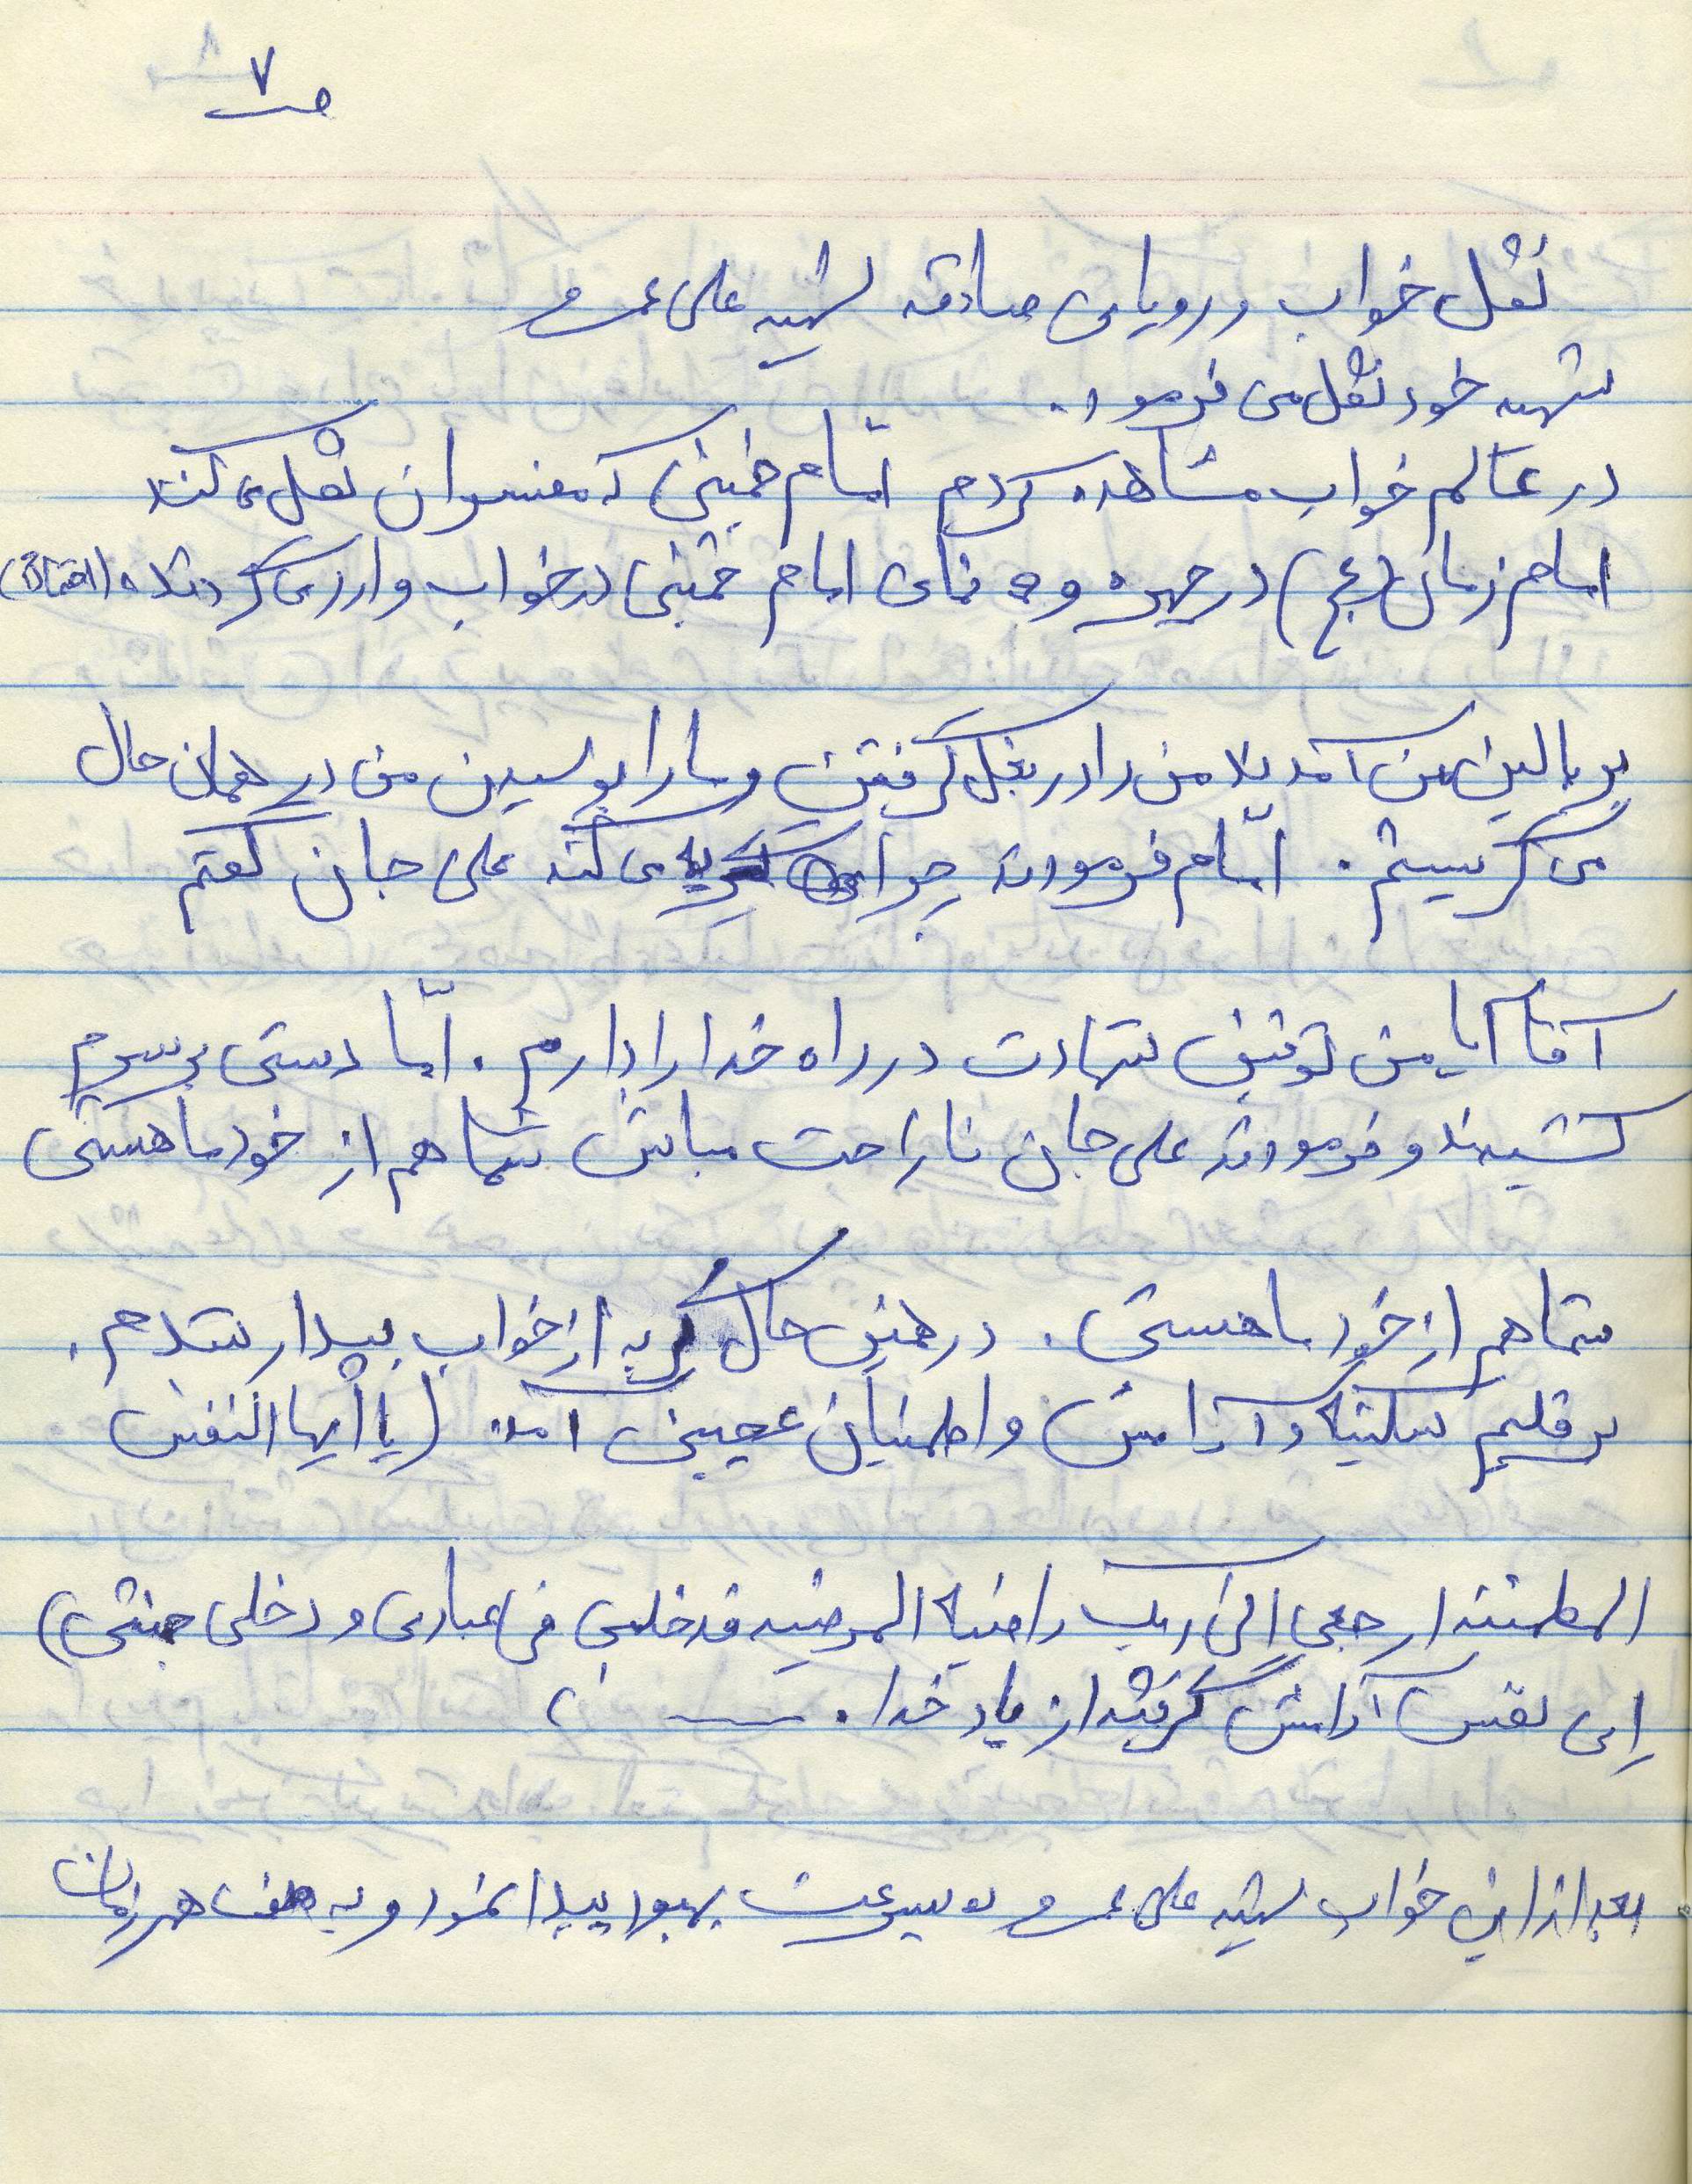 ص ۷
نقل خواب و رویای صادقه شهید علی عرب
شهید خود نقل می فرمود.
در عالم خواب مشاهده کردم امّام خمینی که مفسران نقل می کنند
امام زمان (عج) در چهره و نمای امام خمینی در خواب وارد می گردند
بر بالین من آمدند من را در بغل گرفتن و مارا بوسیدن من در همان حال
می گریستم. امّام فرمودند چرا گریه می کنند علی جان گفتم
آقا آیا من توفیق شهادت در راه خدا را دارم. امّا دستی بر سرم
کشیدند و فرمودند علی جان ناراحت مباش شما هم از خود ما هستی
شما هم از خود ما هستی. در همین حال گریه از خواب بیدار شدم.
بر قلبم سکینه و آرامش و اطمنیان عجیبی آمد. (یا ایها النفس
المطمئنه ارجعی الی ربک راضیه المرضیه فدخلی فی عبادی و دخلی جنتی)
اِی نفس آرامش گرفته از یاد خدا.
بعد از این خواب شهید علی عرب به سرعت بهبود پیدا نمود و به هر زمان